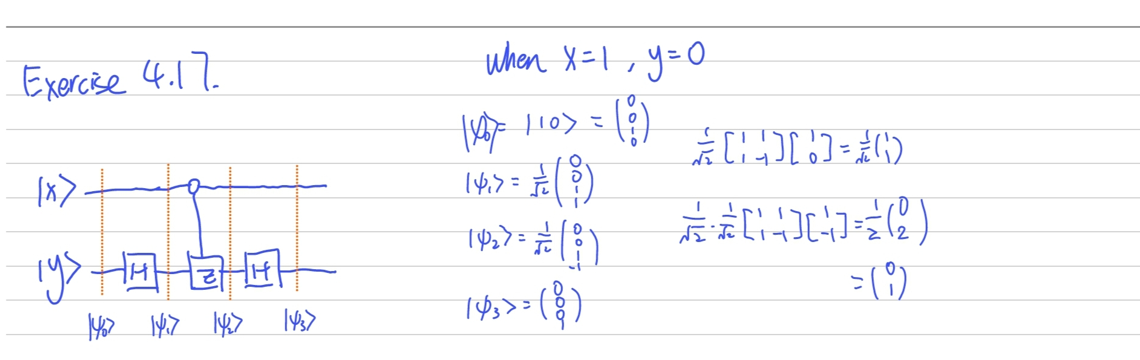 Exercise 4.17.
|x>
H
Z
H
|y>
|ψ₀> |ψ₁> |ψ₂> |ψ₃>
when x=1 , y=0
|ψ₀>= |10> = (0 0 1 0)
|ψ₁> = 1/√2 (0 0 1 1)
|ψ₂> = 1/√2 (0 0 1 -1)
|ψ₃> = (0 0 0 1)
1/√2 [1 1 1 -1][1 0] = 1/√2 (1 1)
1/√2 · 1/√2 [1 1 1 -1][1 -1] = 1/2 (0 2)
= (0 1)